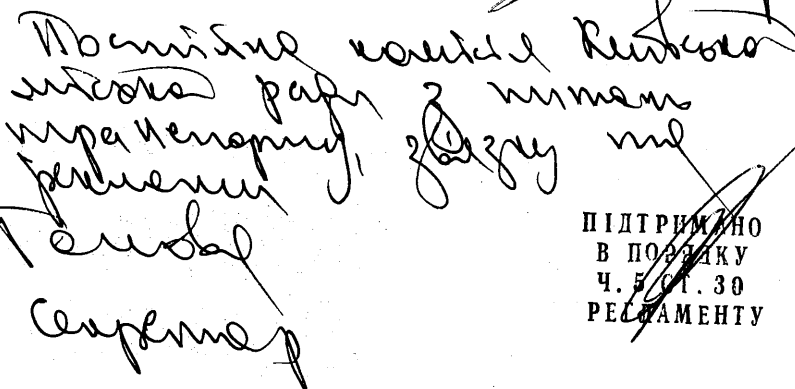 Постійна комісія Київська
міська ради з питань
транспорту, зв'язку та
реклами
Голова
Секретар
ПІДТРИМАНО
В ПОРЯДКУ
Ч. 5 СТ. 30
РЕГЛАМЕНТУ